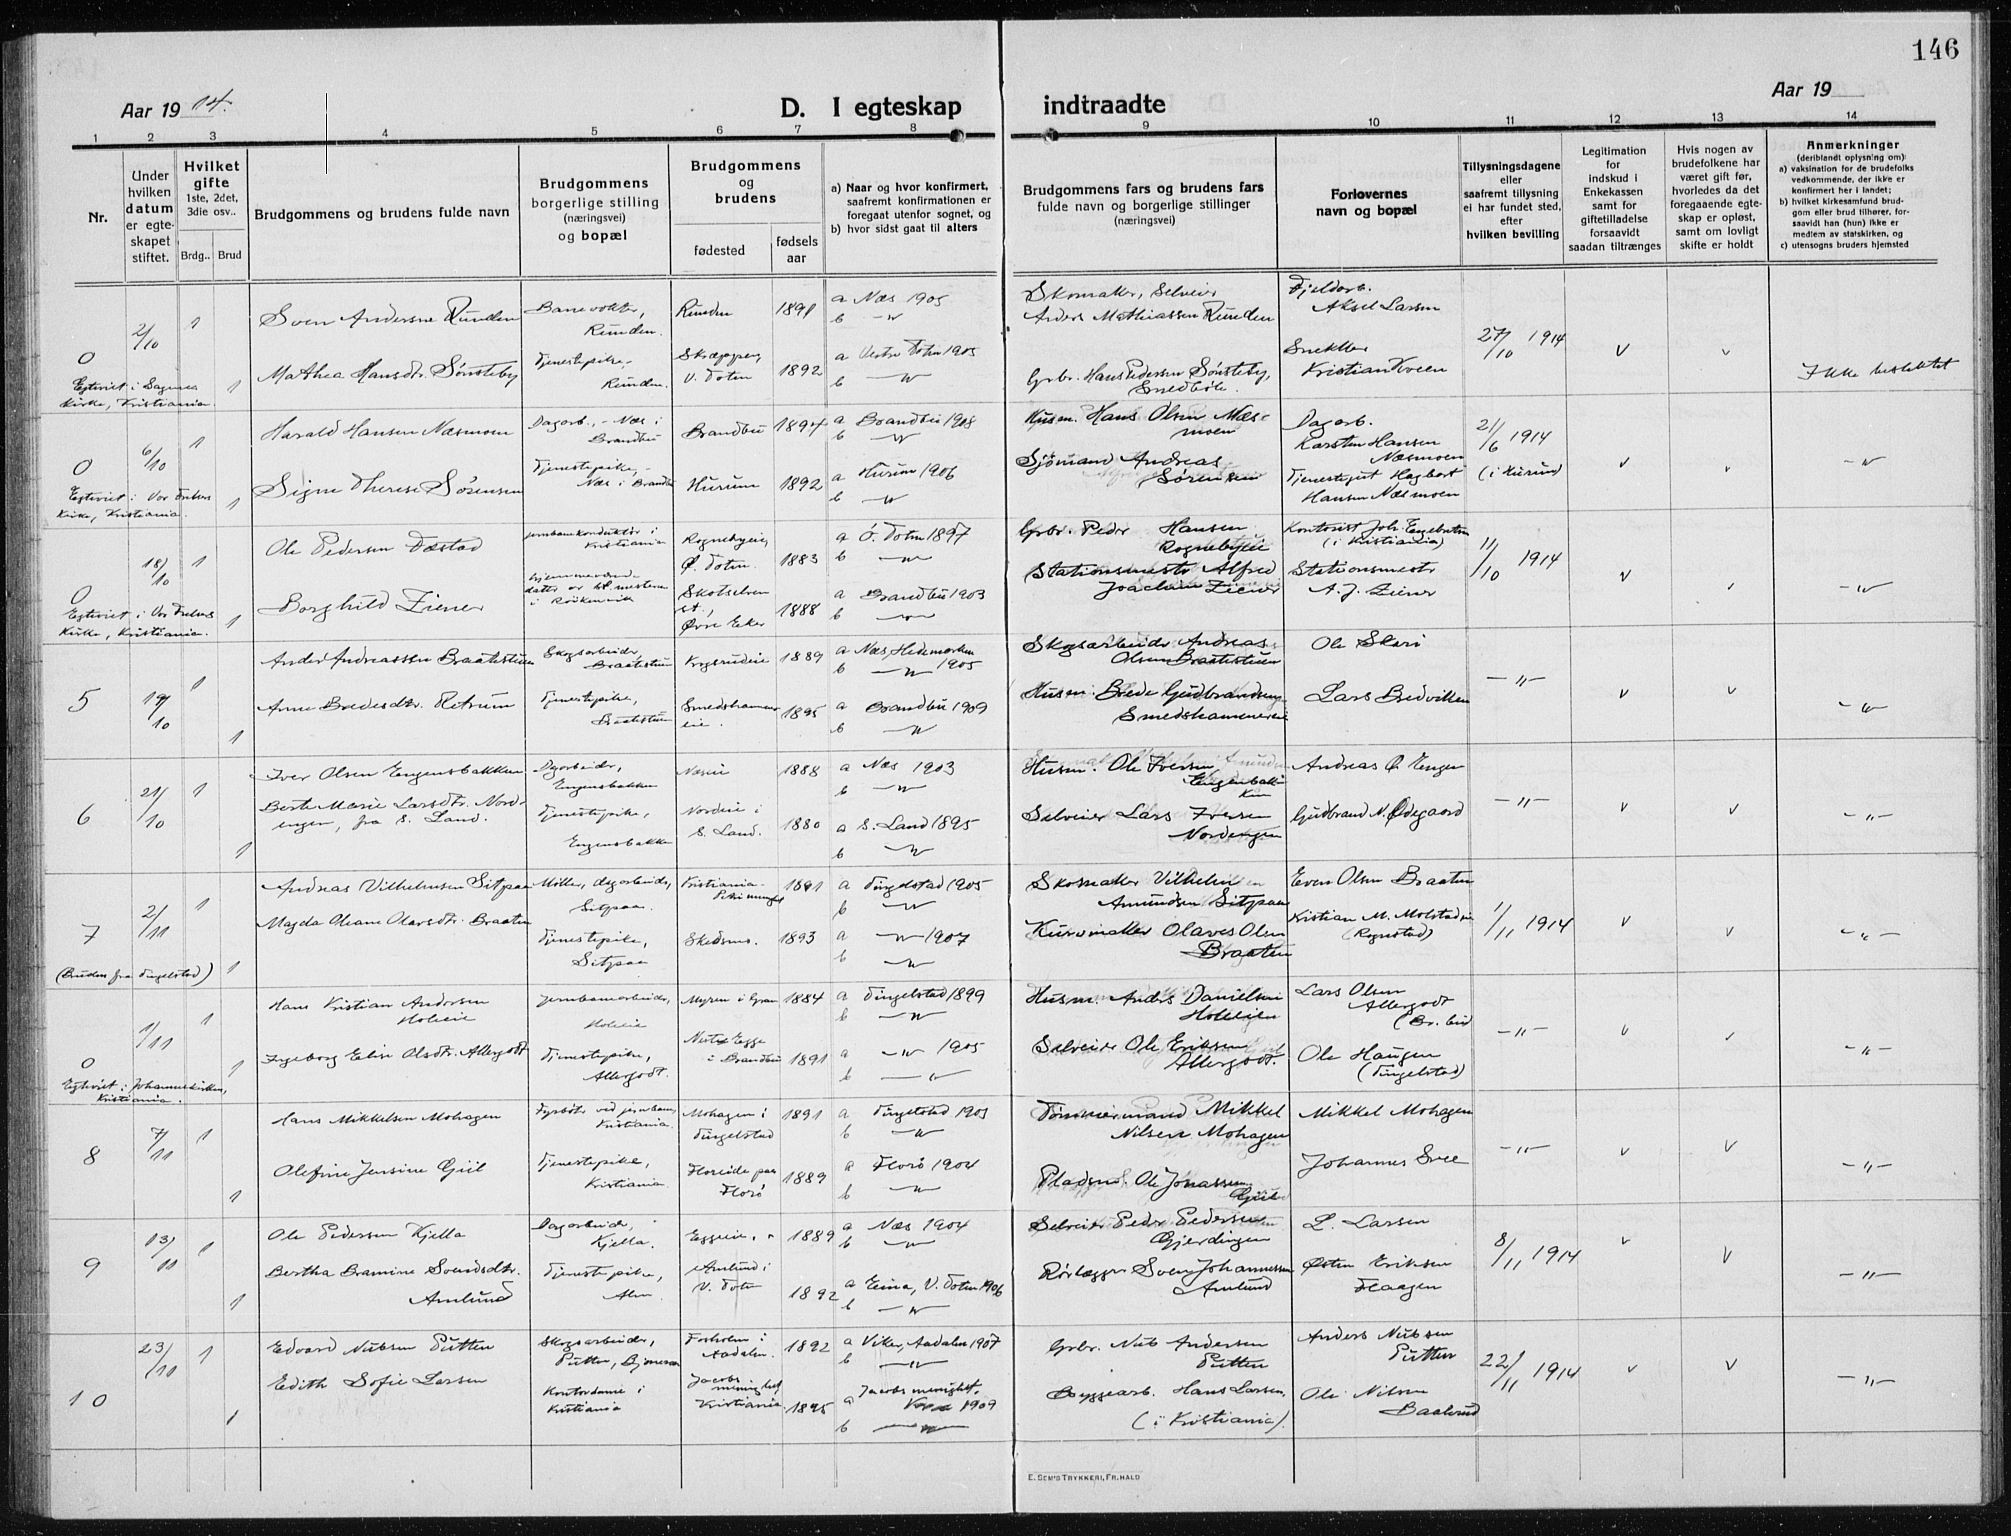 146
Aar 19 14.
D. I egteskap
indtraadte
Aar 19
1 2 3 4 5 6 7 8 9 10 11 12 13 14
Nr.
Under
hvilken
datum
er egte-
skapet
stiftet.
Hvilket
gifte
1ste, 2det,
3die osv..
Brdg.. Brud
Brudgommens og brudens fulde navn
Brudgommens
borgerlige stilling
(næringsvei)
og bopæl
Brudgommens
og
brudens
fødested
fødsels
aar
a) Naar og hvor konfirmert,
saafremt konfirmationen er
foregaat utenfor sognet, og
b) hvor sidst gaat til alters
Brudgommens fars og brudens fars
fulde navn og borgerlige stillinger
(næringsvei)
Forlovernes
navn og bopæl
Tillysningsdagene
eller
saafremt tillysning
ei har fundet sted,
efter
hvilken bevilling
Legitimation
for
indskud i
Enkekassen
samt for
giftetilladelse
forsaavidt
saadan tiltrænges
Hvis nogen av
brudefolkene har
været gift før,
hvorledes da det
foregaaende egte-
skap er opløst,
samt om lovligt
skifte er holdt
Anmerkninger
(deriblandt oplysning om):
a) vaksination for de brudefolks
vedkommende, der ikke er
konfirmert her i landet;
b) hvilket kirkesamfund brud-
gom eller brud tilhører, for-
saavidt han (hun) ikke er
medlem av statskirken, og
c) utensogns bruders hjemsted
0 2/10 1 Sven Andersen Runden Banevokter, Runden. Runden 1891 a Næs 1905 b —"—
Skomaker, Selveier Anders Mathiassen Runden Fjeldarb. Aksel Larsen
1 Mathea Hansdtr. Sønsteby Tjenestepike, Runden. V. Toten 1892 a Vestre Toten 1905 b —"—
Grbr. Hans Pedersen Sønsteby, Snekker Kristian Kveen 27/10 1914 v v Ikke beslektet
Egteviet i Sagenes
Kirke, Kristiania.
0 6/10 1 Harald Hansen Næsmoen Dagarb., Næs i Brandbu Brandbu 1894 a Brandbu 1908 b —"—
Husm. Hans Olsen Næsmoen Dagarb. Karsten Hansen Næsmoen 21/6 1914
1 Signe Therese Sørensen Tjenestepike, Næs i Brandbu Hurum 1892 a Hurum 1906 b —"—
Sjømand Andreas Sørensen Tjenestegut Hagbart Hansen Næsmoen (i Hurum) v v —"—
Egteviet i Vor Frelsers
Kirke, Kristiania.
0 18/10 1 Ole Pedersen Kristiania Ø. Toten. 1883 a Ø. Toten 1897 b —"—
Grbr. Peder Hansen Rognebyeie Kontorist Joh. Engebretsen (i Kristiania)
1 Borghild Ziener i Røikenvik Skotselven st., Øvre Eker 1888 a Brandbu 1903 b —"—
Stationsmester Alfred Joachim Ziener Stationsmester A. J. Ziener 11/10 1914 v v —"—
Egteviet i Vor Frelsers
Kirke, Kristiania.
5 19/10 1 Anders Andreassen Braatestuen Skogsarbeider, Braatestuen 1889 a Næs, Hedemarken 1905 b —"—
Skogsarbeider Andreas Olsen Braatestuen Ole Skarø
1 Anne Bredesdtr. Retrum Tjenestepike, Braatestuen Smedshammereie. 1895 a Brandbu 1909 b —"—
Husm. Brede Gudbrandsen Smedshammereie Lars Bredviken —"— v v —"—
6 21/10 1 Iver Olsen Engensbakken Dagarbeider, Engensbakken Næseie 1888 a Næs 1903 b —"—
Husm. Ole Iversen Engenbakken Andreas O. Engen
1 Berte Marie Larsdtr. Nordengen, fra S. Land. Tjenestepike, Engensbakken Nordeie i S. Land. 1880 a S. Land 1895 b —"—
Selveier Lars Iversen Nordengen Gudbrand N. Ødegaard —"— v v —"—
7 2/11 1 Andreas Vilhelmsen Sitpaa Møller, dagarbeider, Sitpaa. Kristiania 1891 a Tingelstad 1905 b —"—
Skomaker Vilhelm Amundsen Sitpaa Even Olsen Braaten
1 Magda Oleane Olavsdtr. Braaten Tjenestepike, Sitpaa Skedsmo. 1893 a —"— 1907 b —"—
Kurvmaker Olaves Olsen Braaten Kristian M. Molstad (Rognstad) 1/11 1914 v v —"—
(Bruden fra Tingelstad)
0 1/11 1 Hans Kristian Andersen Holeeie Jernbanearbeider, Holeeie Myren i Gran 1884 a Tingelstad 1899 b —"—
Husm. Anders Danielsen Holeeien Lars Olsen Allergodt (Br.bu)
1 Ingeborg Eline Olsdtr. Allergodt Tjenestepike, Allergodt. i Brandbu 1891 a —"— 1905 b —"—
Selveier Ole Eriksen Allergodt. Ole Haugen (Tingelstad) —"— v v —"—
Egteviet i Johanneskirken,
Kristiania.
8 7/11 1 Hans Mikkelsen Mohagen Fyrbøter ved jernbanen, Kristiania. Mohagen i Tingelstad 1891 a Tingelstad 1905 b —"—
Tømmermand Mikkel Nilsen Mohagen Mikkel Mohagen
1 Olefine Jensine Giil Tjenestepike, Kristiania. Florø 1889 a Florø 1904 b —"—
Pladsm. Ole Jonassen Johannes Svee —"— v v —"—
9 13/11 1 Ole Pedersen Kjella Dagarbeider, Kjella. Eggeie 1889 a Næs 1904 b —"—
Selveier Peder Pedersen Gjerdingen L. Larsen
1 Bertha Bramine Svendsdtr. Amlund Tjenestepike, Alm Amlund i V. Toten 1892 a Eina, V. Toten 1906 b —"—
Rørlægger Sven Johannessen Amlund Østen Eriksen Haagen 8/11 1914 v v —"—
10 23/11 1 Edvard Nubsen Putten Skogsarbeider, Putten, Forholm i Aadalen. 1892 a Viker, Aadalen 1907 b —"—
Grbr. Nub Andersen Putten Anders Nubsen Putten
1 Edith Sofie Larsen Kontordame i Kristiania Jacobs menighet Kristiania 1895 a Jacobs menighet, 1909 b —"—
Byggearb. Hans Larsen, (i Kristiania). Ole Nilsen Baalerud 22/11 1914 v v —"—
E. SEM'S TRYKKERI, FR.HALD